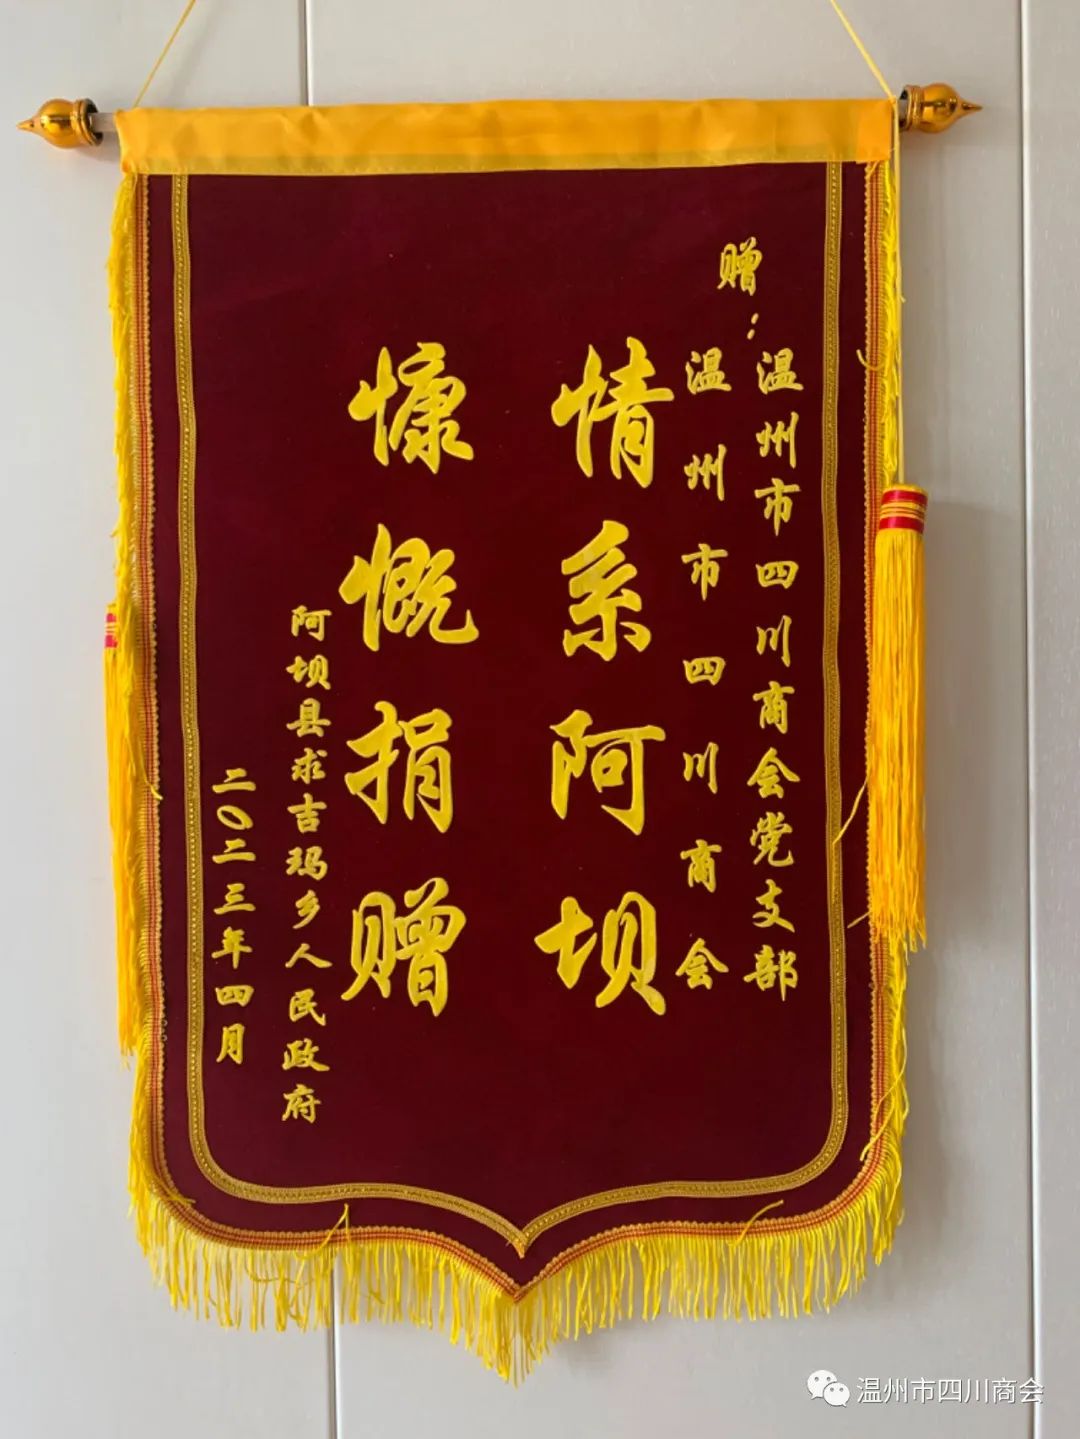 赠：
温州市四川商会党支部
温州市四川商会
情系阿坝
慷慨捐赠
阿坝县求吉玛乡人民政府
二〇二三年四月
温州市四川商会